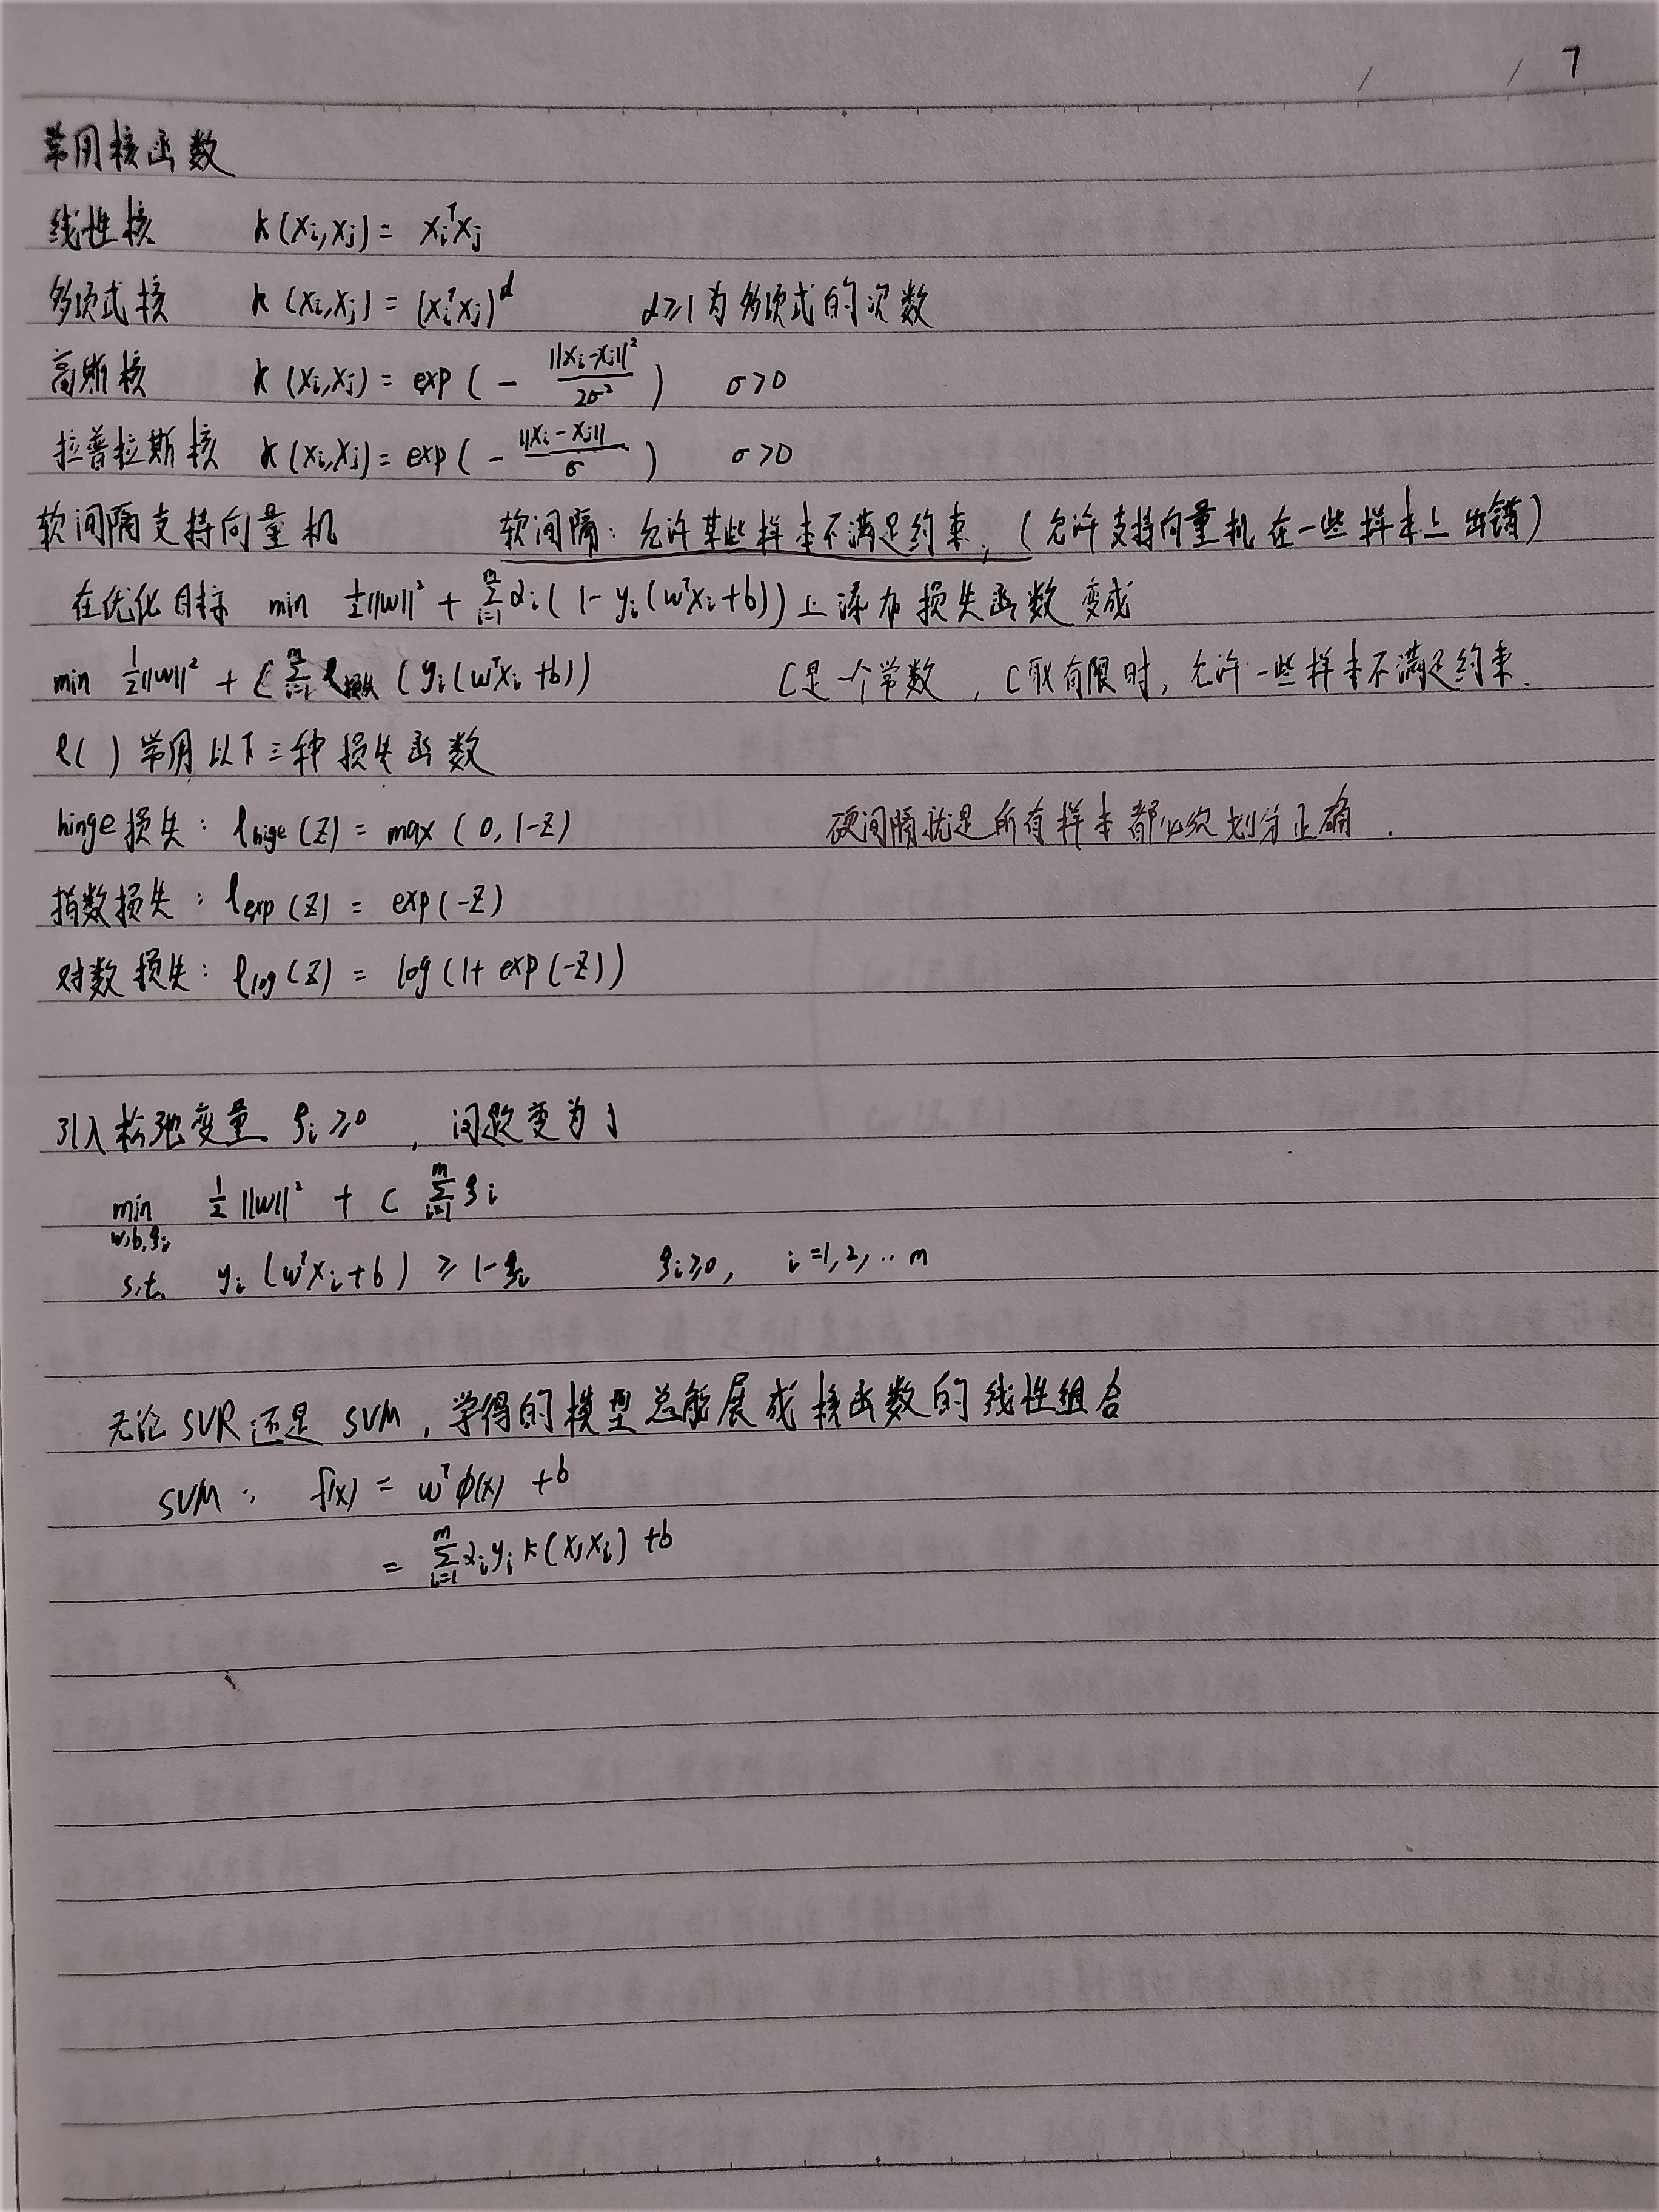 7
常用核函数
线性核 k(xi,xj) = xiᵀxj
多项式核 k(xi,xj) = (xiᵀxj)^d d≥1为多项式的次数
高斯核 k(xi,xj) = exp(- ||xi-xj||²/2σ²) σ>0
拉普拉斯核 k(xi,xj) = exp(- ||xi-xj||/σ) σ>0
软间隔支持向量机 软间隔:允许某些样本不满足约束,(允许支持向量机在一些样本上出错)
在优化目标 min ½||w||² + Σ_{i=1}^m αi(1-yi(wᵀxi+b))上添加损失函数变成
min ½||w||² + C Σ_{i=1}^m ℓ损失(yi(wᵀxi+b)) C是一个常数,C取有限时,允许一些样本不满足约束.
ℓ( )常用以下三种损失函数
hinge损失: ℓhige(z) = max(0,1-z) 硬间隔就是所有样本都必须划分正确.
指数损失: ℓexp(z) = exp(-z)
对数损失: ℓlog(z) = log(1+exp(-z))
引入松弛变量 ξi≥0 ,问题变为了
min_{w,b,ξi} ½||w||² + C Σ_{i=1}^m ξi
s.t. yi(wᵀxi+b) ≥ 1-ξi ξi≥0, i=1,2,..m
无论SVR还是SVM,学得的模型总能展成核函数的线性组合
SVM: f(x) = wᵀφ(x) +b
= Σ_{i=1}^m αiyik(x,xi) +b